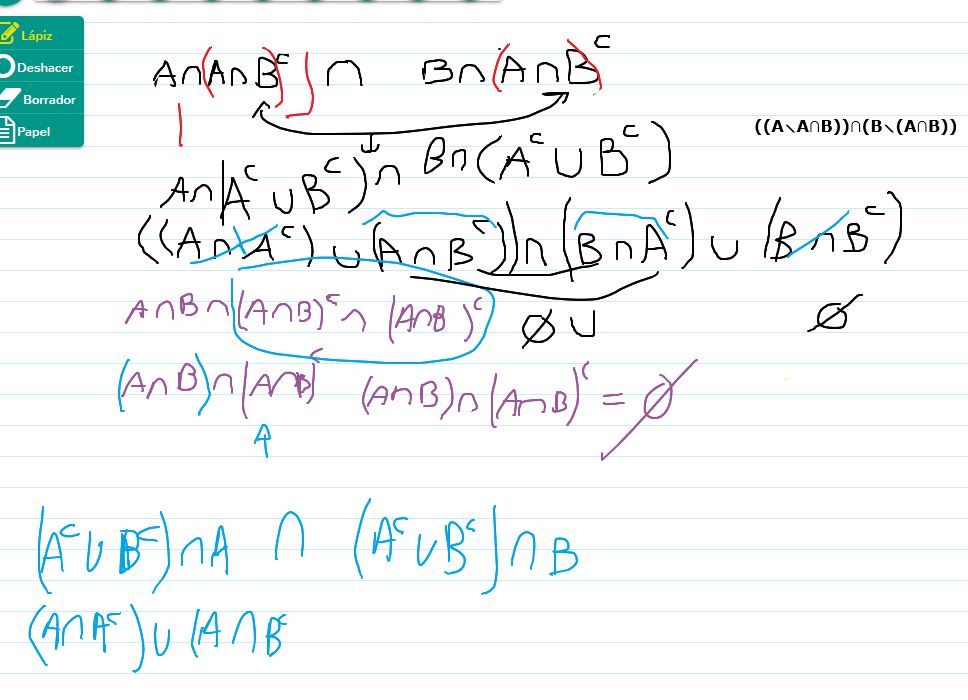 Lápiz
Deshacer
Borrador
Papel
A∩(A∩B)ᶜ] ∩ B∩(A∩B)ᶜ
((A∖A∩B))∩(B∖(A∩B))
A∩(Aᶜ∪Bᶜ)∩ B∩(Aᶜ∪Bᶜ)
((A∩Aᶜ)∪(A∩Bᶜ))∩(B∩Aᶜ)∪(B∩Bᶜ)
A∩B∩(A∩B)ᶜ∩(A∩B)ᶜ ∅∪ ∅
(A∩B)∩(A∩B)ᶜ (A∩B)∩(A∩B)ᶜ = ∅
(Aᶜ∪Bᶜ)∩A ∩ (Aᶜ∪Bᶜ]∩B
(A∩Aᶜ)∪(A∩Bᶜ